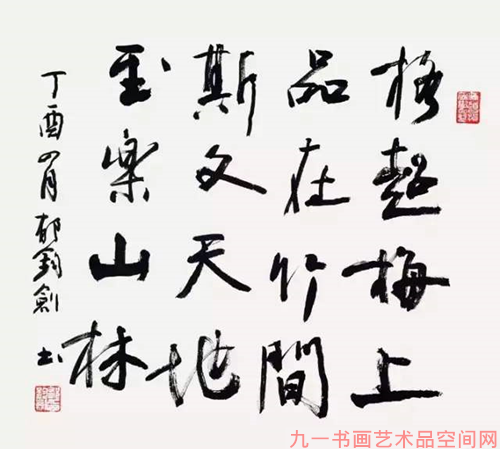 格超梅上
品在竹間
斯文天地
至樂山林
丁酉四月郁鈞劍书
九一书画艺术品空间网